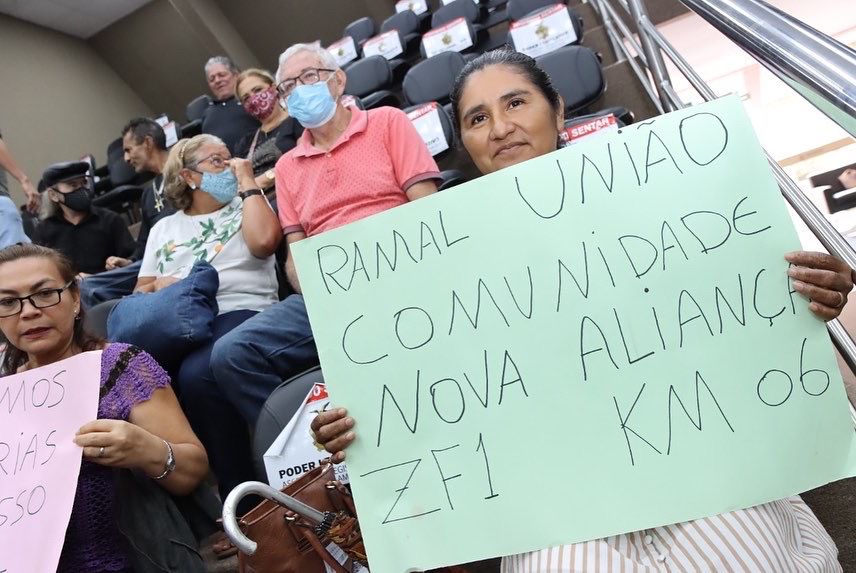 RAMAL UNIÃO
COMUNIDADE
NOVA ALIANÇA
ZF1 KM 06
MOS
RIAS
SSO
PODER
SENTAR